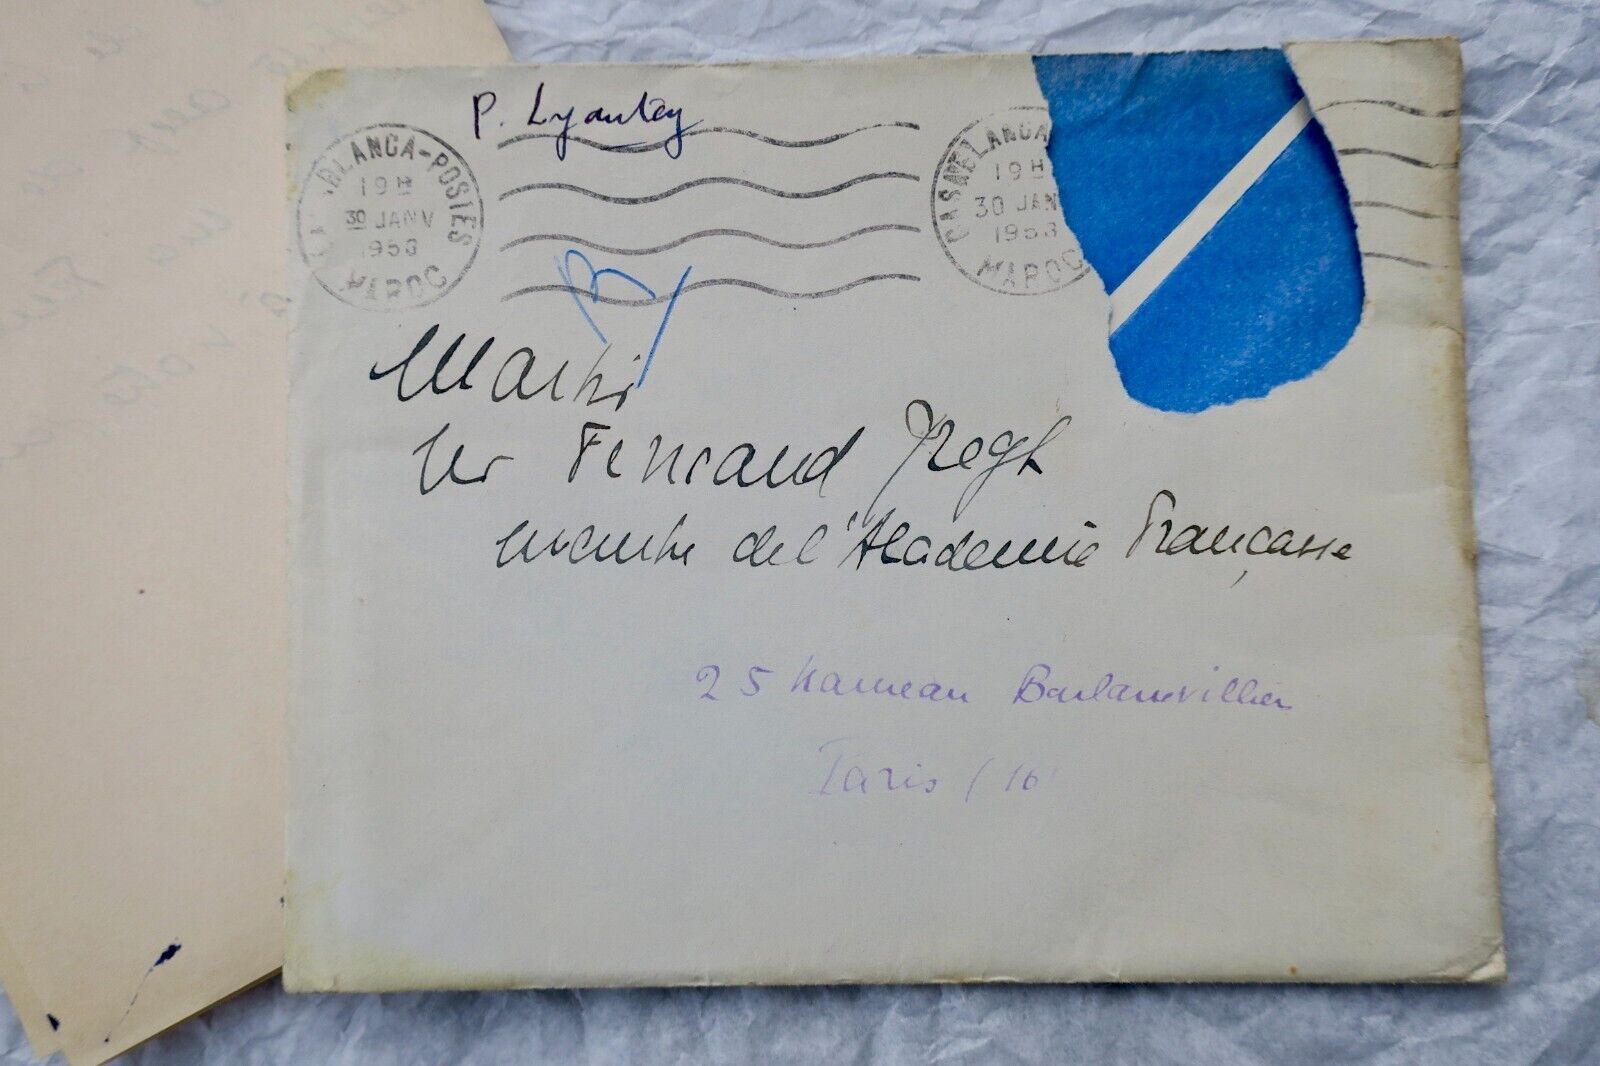 P. Lyautey
CASABLANCA-POSTES
19H
30 JANV
1953
MAROC
CASABLANCA
19H
30 JAN
1953
MAROC
Mr Fernand Gregh
membre de l'Academie Française
25 hameau Boulainvilliers
Paris (16